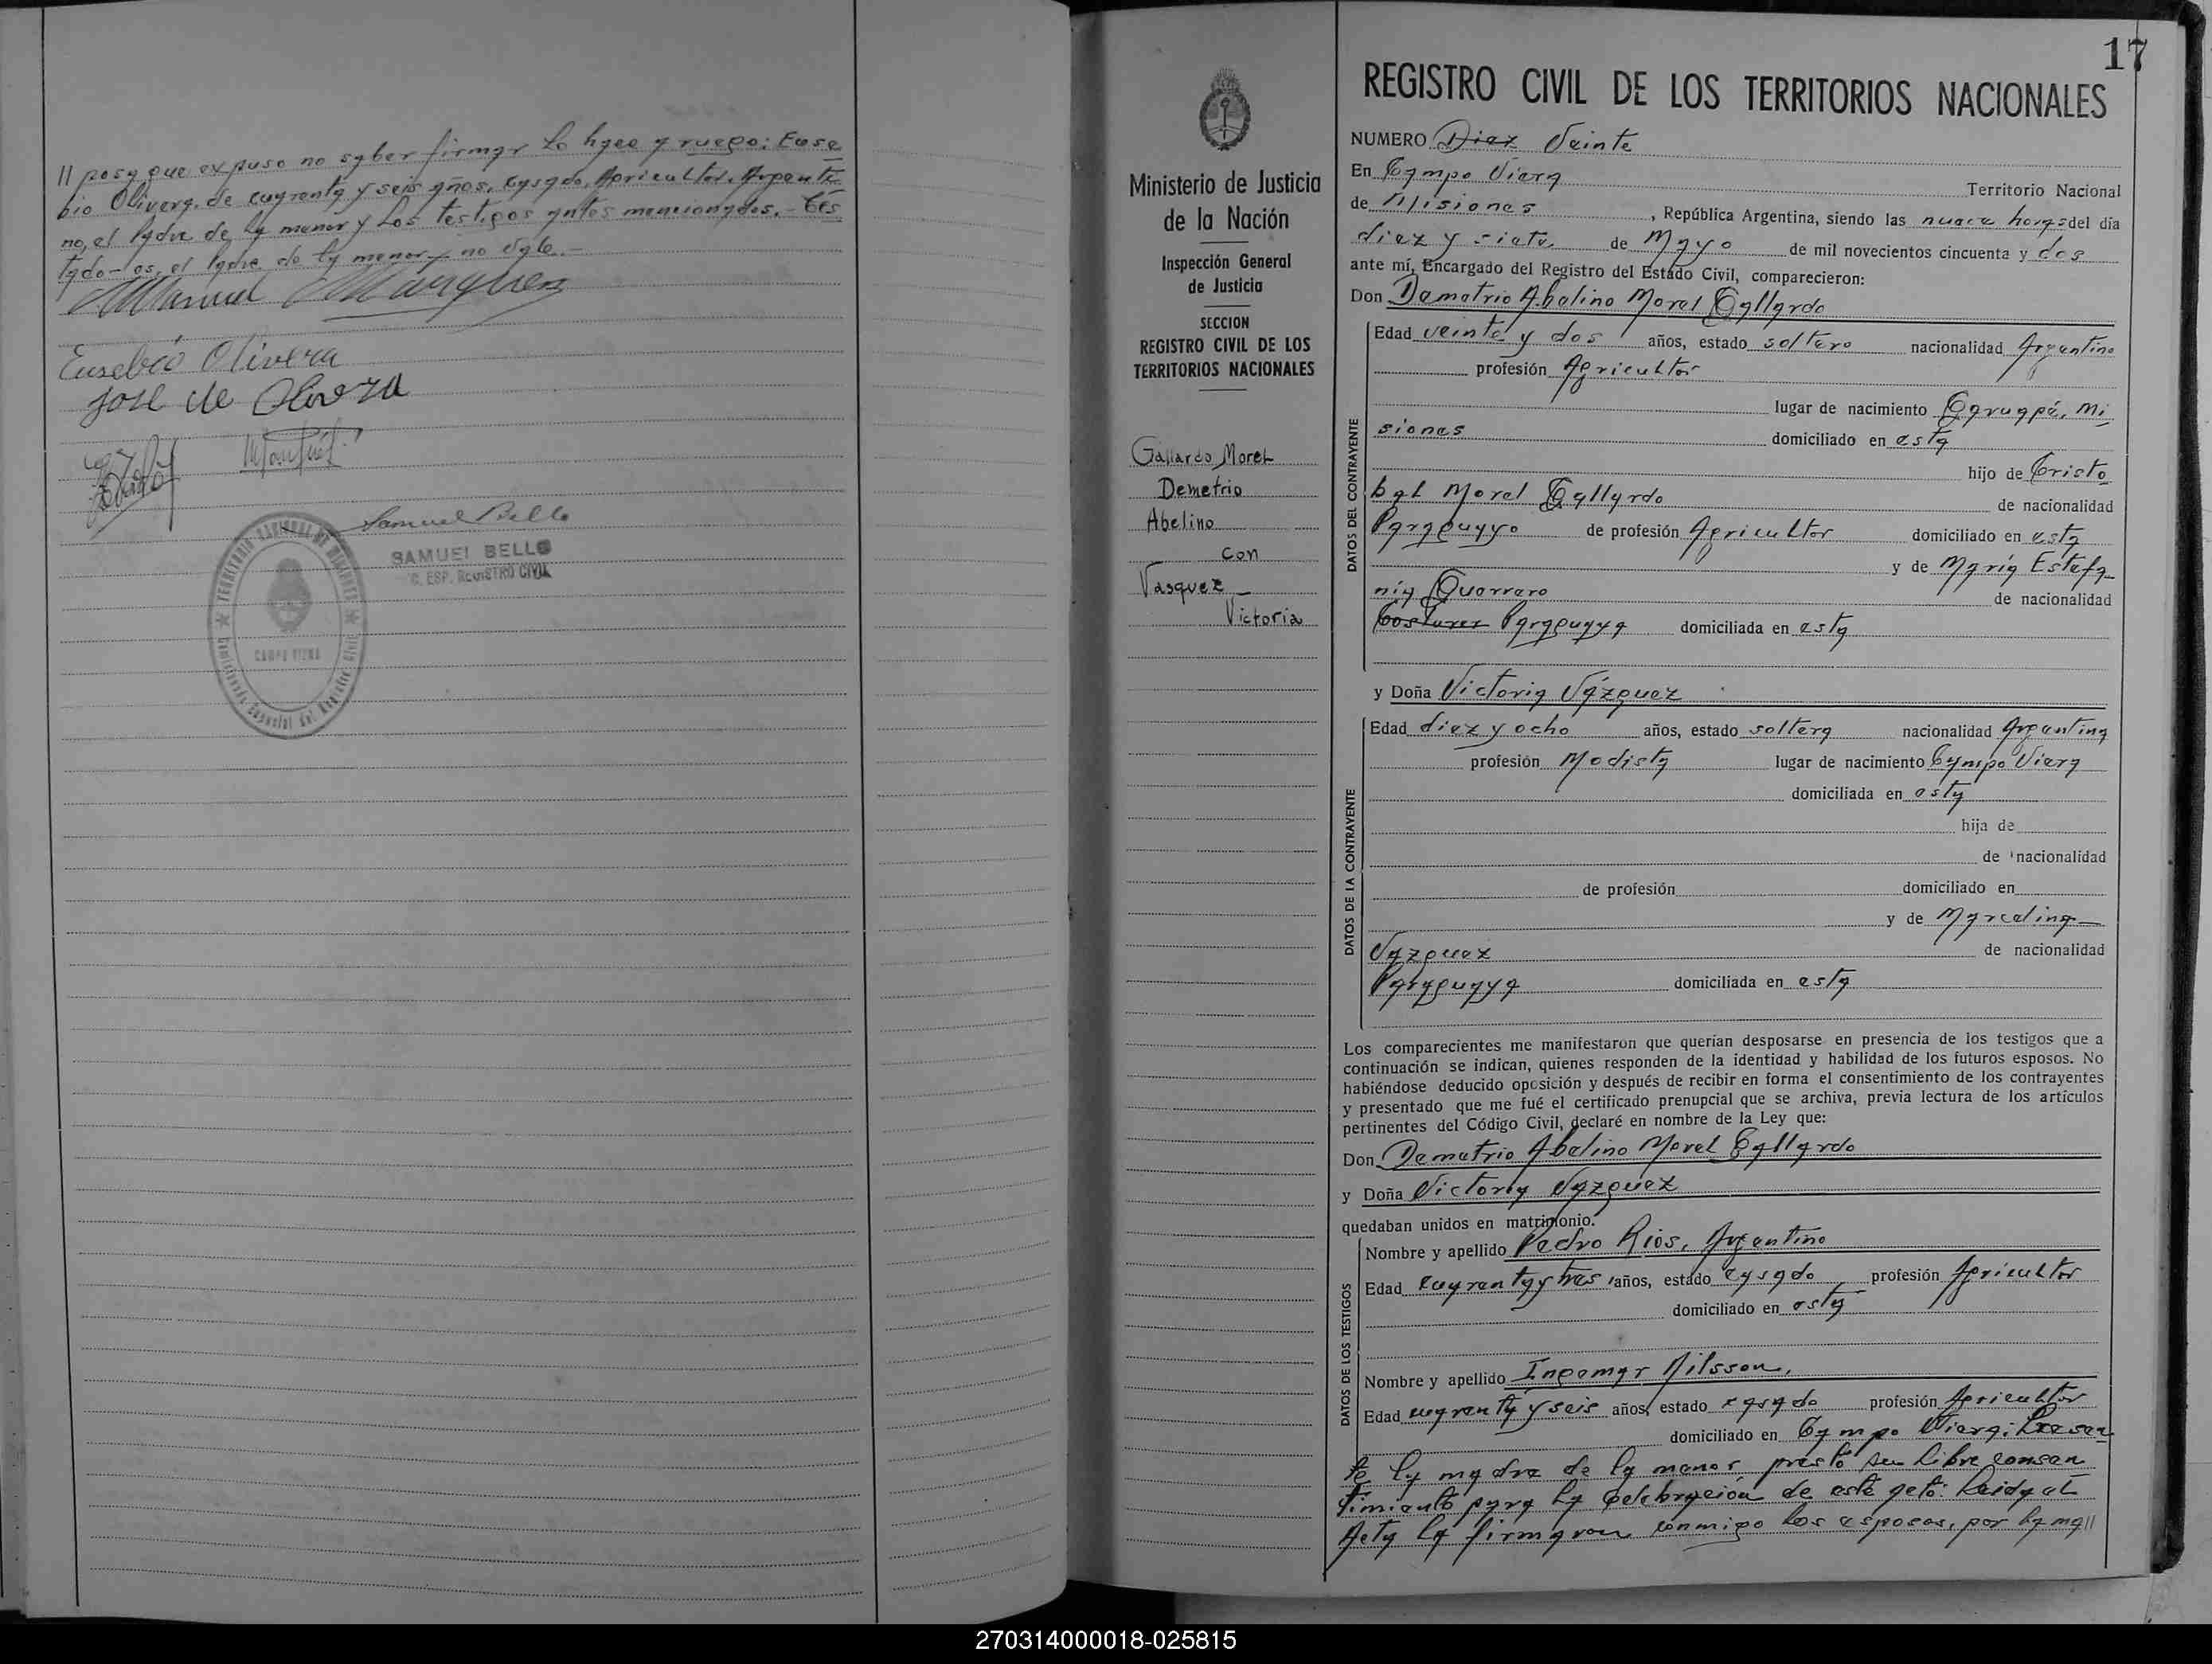 // posa que expuso no saber firmar lo hace a ruego: Euse
bio Olivera, de cuarenta y seis años, casado, Agricultor, Argenti
no, el padre de la menor y los testigos antes mencionados.- Tes
tado- es, el padre de la menor y no vale.-
Manuel Marquez
Eusebio Olivera
José de Olivera
Samuel Bello
SAMUEL BELLO
E. ESP. REGISTRO CIVIL
TERRITORIO NACIONAL DE MISIONES
CAMPO VIERA
17
Ministerio de Justicia
de la Nación
Inspección General
de Justicia
SECCION
REGISTRO CIVIL DE LOS
TERRITORIOS NACIONALES
Gallardo Morel
Demetrio
Abelino
con
Vasquez
Victoria
REGISTRO CIVIL DE LOS TERRITORIOS NACIONALES
NUMERO Diez Veinte
En Campo Viera Territorio Nacional
de Misiones, República Argentina, siendo las nueve horas del día
diez y siete de Mayo de mil novecientos cincuenta y dos
ante mí, Encargado del Registro del Estado Civil, comparecieron:
Don Demetrio Abelino Morel Gallardo
DATOS DEL CONTRAYENTE
Edad veinte y dos años, estado soltero nacionalidad Argentino
profesión Agricultor
lugar de nacimiento Garuapé, Mi
siones domiciliado en esta
hijo de Cristo
bal Morel Gallardo de nacionalidad
Paraguayo de profesión Agricultor domiciliado en esta
y de María Estefa
nía Guerrero de nacionalidad
Paraguaya domiciliada en esta
y Doña Victoria Vázquez
DATOS DE LA CONTRAYENTE
Edad diez y ocho años, estado soltera nacionalidad Argentina
profesión Modista lugar de nacimiento Campo Viera
domiciliada en esta
hija de
de nacionalidad
de profesión domiciliado en
y de Marcelina
Vazquez de nacionalidad
Paraguaya domiciliada en esta
Los comparecientes me manifestaron que querían desposarse en presencia de los testigos que a
continuación se indican, quienes responden de la identidad y habilidad de los futuros esposos. No
habiéndose deducido oposición y después de recibir en forma el consentimiento de los contrayentes
y presentado que me fué el certificado prenupcial que se archiva, previa lectura de los artículos
pertinentes del Código Civil, declaré en nombre de la Ley que:
Don Demetrio Abelino Morel Gallardo
y Doña Victoria Vazquez
quedaban unidos en matrimonio.
DATOS DE LOS TESTIGOS
Nombre y apellido Pedro Rios, Argentino
Edad cuarenta y tres años, estado casado profesión Agricultor
domiciliado en esta
Nombre y apellido Ingemar Nilsson,
Edad cuarenta y seis años, estado casado profesión Agricultor
domiciliado en Campo Viera; Presen
te la madre de la menor prestó su libre consen
timiento para la celebración de este acto: Leida el
Acta la firmaron conmigo los esposos, por la ma//
270314000018-025815